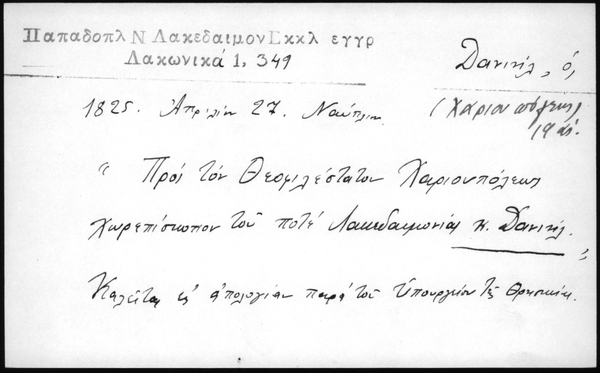 Παπαδοπλ Ν Λακεδαιμον Εκκλ εγγρ
Λακωνικά 1, 349
Δανιήλ, ὁ,
(Χαριουπόλεως
19 αἰ.
1825. Ἀπριλίου 27. Ναύπλιον
" Πρὸς τὸν Θεοφιλέστατον Χαριουπόλεως
χωρεπίσκοπον τοῦ ποτέ Λακεδαιμονίας κ. Δανιήλ. "
Καλεῖται εἰς ἀπολογίαν παρὰ τοῦ Ὑπουργείου τῆς Θρησκείας.